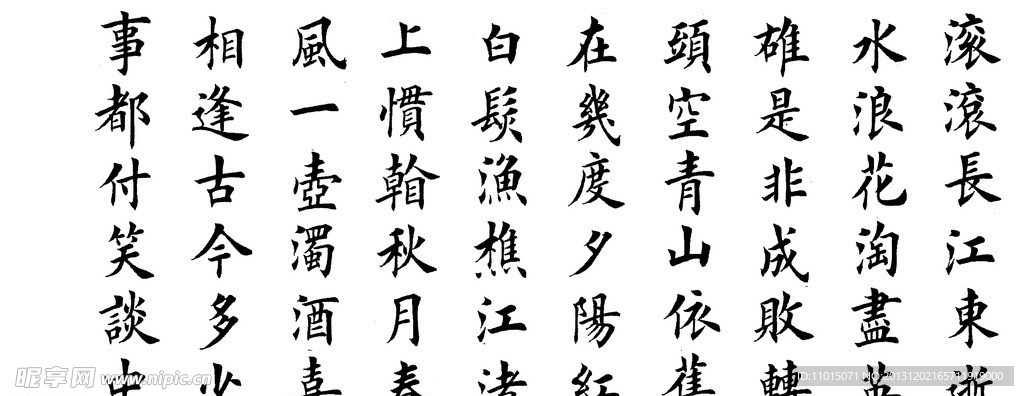 滚滾長江東逝
水浪花淘盡英
雄是非成敗轉
頭空青山依舊
在幾度夕陽紅
白髮漁樵江渚
上慣秋月春
風一壺濁酒喜
相逢古今多少
事都付笑談中
昵享网 www.nipic.cn
ID:11015071 NO:20131202165711979000